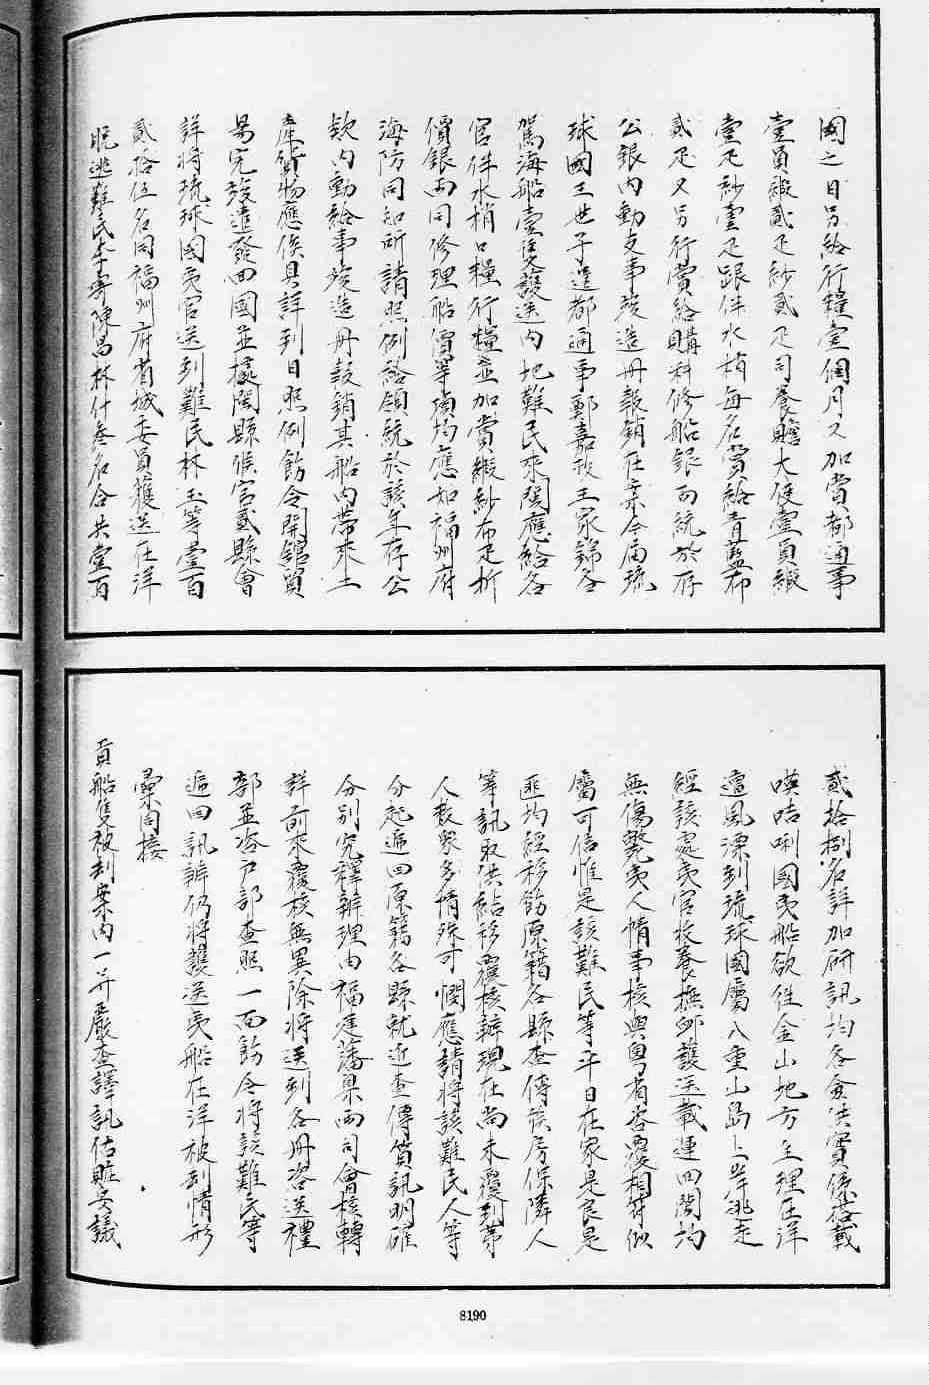 國之日另給行糧壹個月又加賞都通事
壹員緞貳疋紗貳疋司養贍大使壹員緞
壹疋紗壹疋跟伴水梢每名賞給青藍布
貳疋又另行賞給購料修船銀兩統於存
公銀內動支事竣造册報銷在案今届琉
球國王世子遣都通事鄭嘉政王家錦各
駕海船壹隻護送內地難民來閩應給各
官伴水梢口糧行糧並加賞緞紗布疋折
價銀兩同修理船價等項均應如福州府
海防同知所請照例給領統於該年存公
欵內動給事竣造册鼓銷其船內帶來土
產貨物應俟具詳到日照例飭令開館貿
易完竣遣發回國並據閩縣侯官貳縣會
詳將琉球國夷官送到難民林玉等壹百
貳拾伍名同福州府省城委員護送在洋
脫逃難民李寄陳昌林什叁名合共壹百
貳拾捌名詳加研訊均各僉供實係搭載
嘆咭唎國夷船欲徃金山地方生理在洋
遭風漂到琉球國屬八重山島上岸逃走
經該處夷官收養撫卹護送載運回閩均
無傷斃夷人情事核與粵省咨覆相符似
屬可信惟是該難民等平日在家是良是
匪均經移飭原籍各縣查傳族房保隣人
等訊取供結移覆核辦現在尚未覆到第
人數眾多情殊可憫應請將該難民人等
分起遞回原籍各縣就近查傳質訊明確
分別完釋辦理由福建藩臬兩司會核轉
詳前來覆核無異除將送到各册咨送禮
部並咨戶部查照一面飭令將該難民等
遞回訊辦仍將護送夷船在洋被刦情形
彙同接
貢船隻被刦案內一并嚴查譯訊估贓妥議
8190